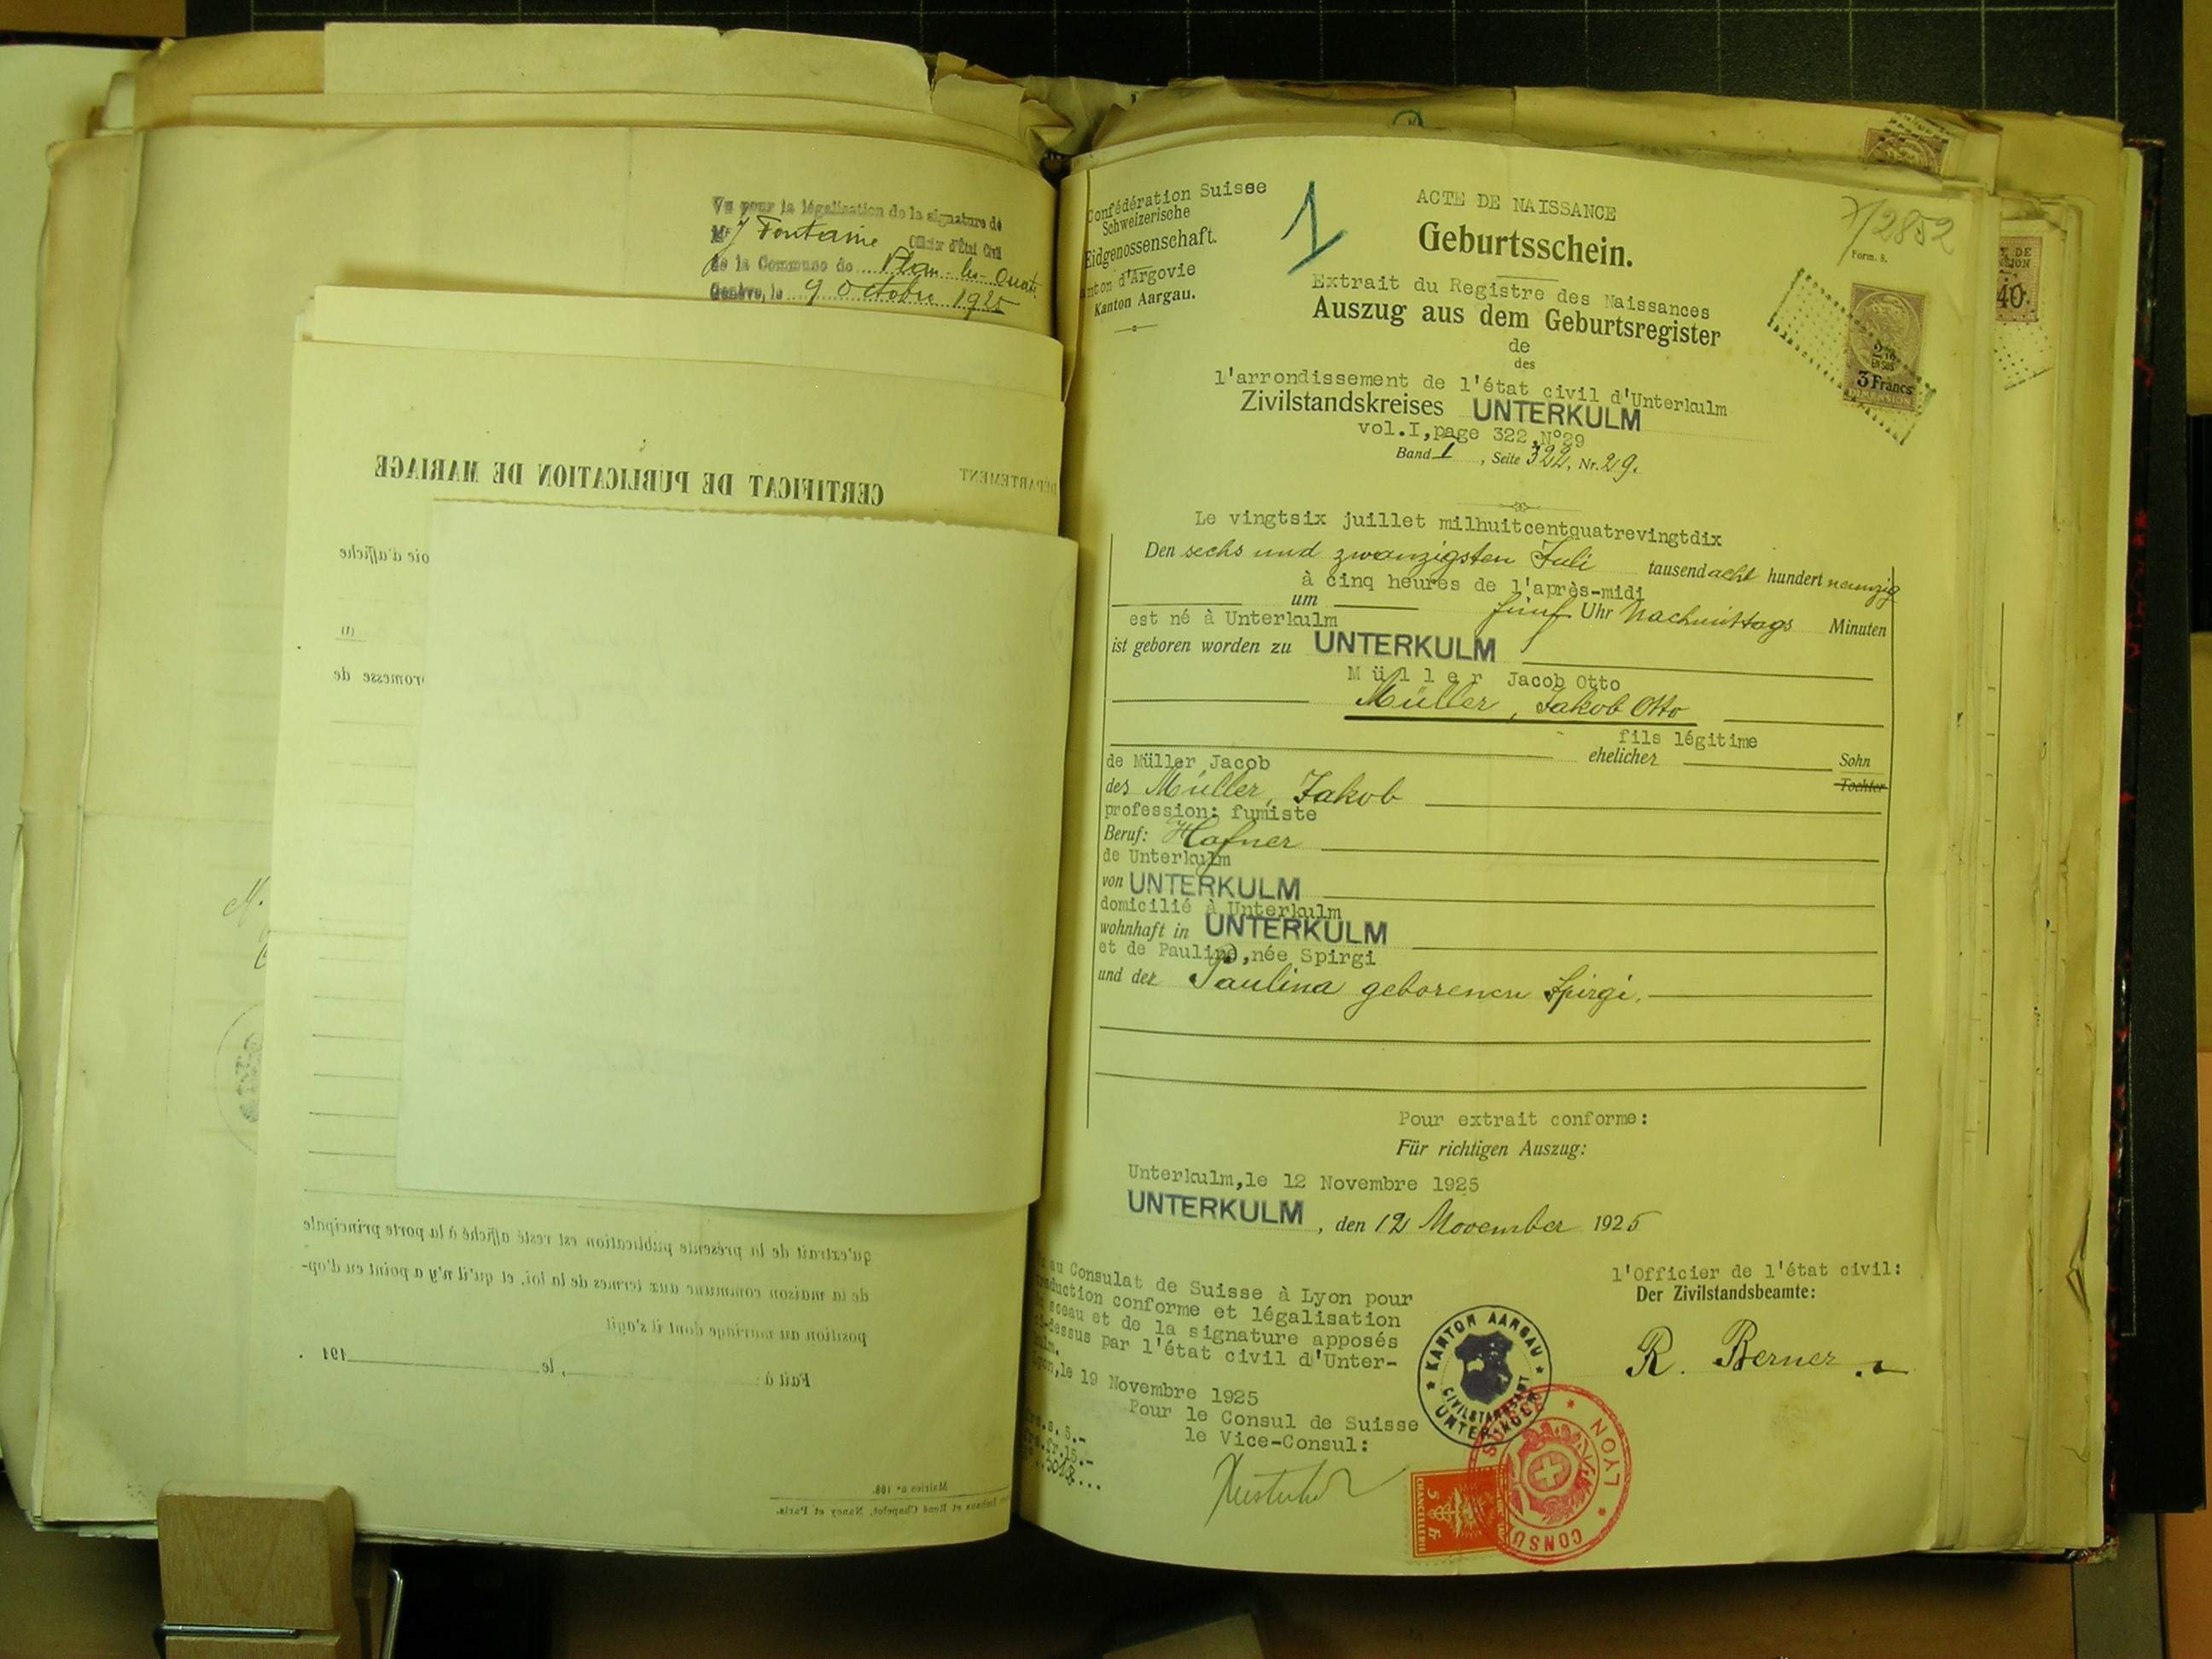 Vu pour la légalisation de la signature de
Mr J Fontaine Officier d'État Civil
de la Commune de Plan-les-Ouates
Genève, le 9 octobre 1925
DÉPARTEMENT
CERTIFICAT DE PUBLICATION DE MARIAGE
oie d'affiche
(1)
romesse de
qu'extrait de la présente publication est resté affiché à la porte principale
de la maison commune aux termes de la loi, et qu'il n'y a point eu d'op-
position au mariage dont il s'agit
Fait à , le 191 .
Mairies n° 108.
et René Chapelot, Nancy et Paris.
Confédération Suisse
Schweizerische
Eidgenossenschaft.
Canton d'Argovie
Kanton Aargau.
1
ACTE DE NAISSANCE
Geburtsschein.
7/2852
Form. 8.
Extrait du Registre des Naissances
Auszug aus dem Geburtsregister
de
des
l'arrondissement de l'état civil d'Unterkulm
Zivilstandskreises UNTERKULM
vol.I,page 322,N°29
Band I , Seite 322, Nr. 29.
EN SUS
3 Francs
DIMENSION
40
Le vingtsix juillet milhuitcentquatrevingtdix
Den sechs und zwanzigsten Juli tausend acht hundert neunzig
à cinq heures de l'après-midi
um fünf Uhr Nachmittags Minuten
est né à Unterkulm
ist geboren worden zu UNTERKULM
Müller Jacob Otto
Müller, Jakob Otto
fils légitime
ehelicher Sohn
Tochter
de Müller Jacob
des Müller, Jakob
profession: fumiste
Beruf: Hafner
de Unterkulm
von UNTERKULM
domicilié à Unterkulm
wohnhaft in UNTERKULM
et de Pauline,née Spirgi
und der Paulina geborenen Spirgi.
Pour extrait conforme:
Für richtigen Auszug:
Unterkulm,le 12 Novembre 1925
UNTERKULM , den 12 November 1925
Vu au Consulat de Suisse à Lyon pour
traduction conforme et légalisation
du sceau et de la signature apposés
ci-dessus par l'état civil d'Unter-
kulm.
Lyon,le 19 Novembre 1925
Pour le Consul de Suisse
le Vice-Consul:
l'Officier de l'état civil:
Der Zivilstandsbeamte:
R. Berner
KANTON AARGAU
CIVILSTANDSAMT
UNTERKULM
SUISSE * LYON * CONSU
CHANCELLERIE
5 fr